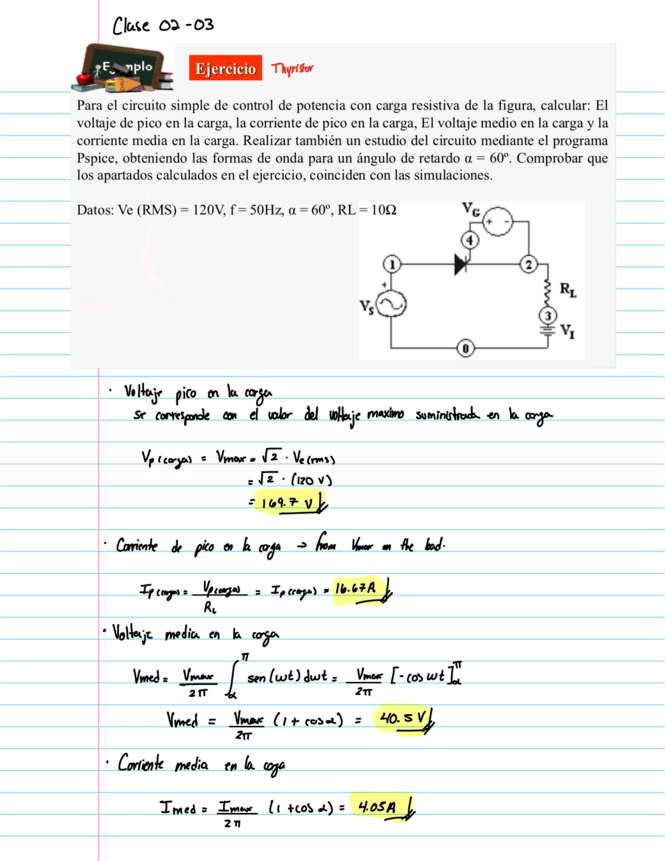 Clase 02-03
Ejemplo
Ejercicio Thyristor
Para el circuito simple de control de potencia con carga resistiva de la figura, calcular: El
voltaje de pico en la carga, la corriente de pico en la carga, El voltaje medio en la carga y la
corriente media en la carga. Realizar también un estudio del circuito mediante el programa
Pspice, obteniendo las formas de onda para un ángulo de retardo α = 60º. Comprobar que
los apartados calculados en el ejercicio, coinciden con las simulaciones.
Datos: Ve (RMS) = 120V, f = 50Hz, α = 60º, RL = 10Ω
VG
+ -
4
1
2
+
VS
RL
3
VI
0
· Voltaje pico en la carga
se corresponde con el valor del voltaje maximo suministrada en la carga
Vp(carga) = Vmax = √2 · Ve(rms)
= √2 · (120 V)
= 169.7 V
· Corriente de pico en la carga → from Vmax on the load.
Ip(carga) = Vp(carga)/RL = Ip(carga) = 16.67A
· Voltaje media en la carga
Vmed = Vmax/2π ∫α^π sen(wt)dwt = Vmax/2π [-cos wt]α^π
Vmed = Vmax/2π (1 + cosα) = 40.5 V
· Corriente media en la caga
Imed = Imax/2π (1 + cos α) = 4.05A